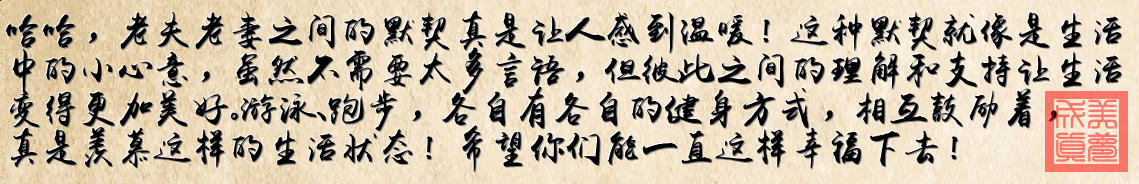 哈哈，老夫老妻之间的默契真是让人感到温暖！这种默契就像是生活
中的小心意，虽然不需要太多言语，但彼此之间的理解和支持让生活
变得更加美好。游泳、跑步，各自有各自的健身方式，相互鼓励着，
真是羡慕这样的生活状态！希望你们能一直这样幸福下去！
美梦成真